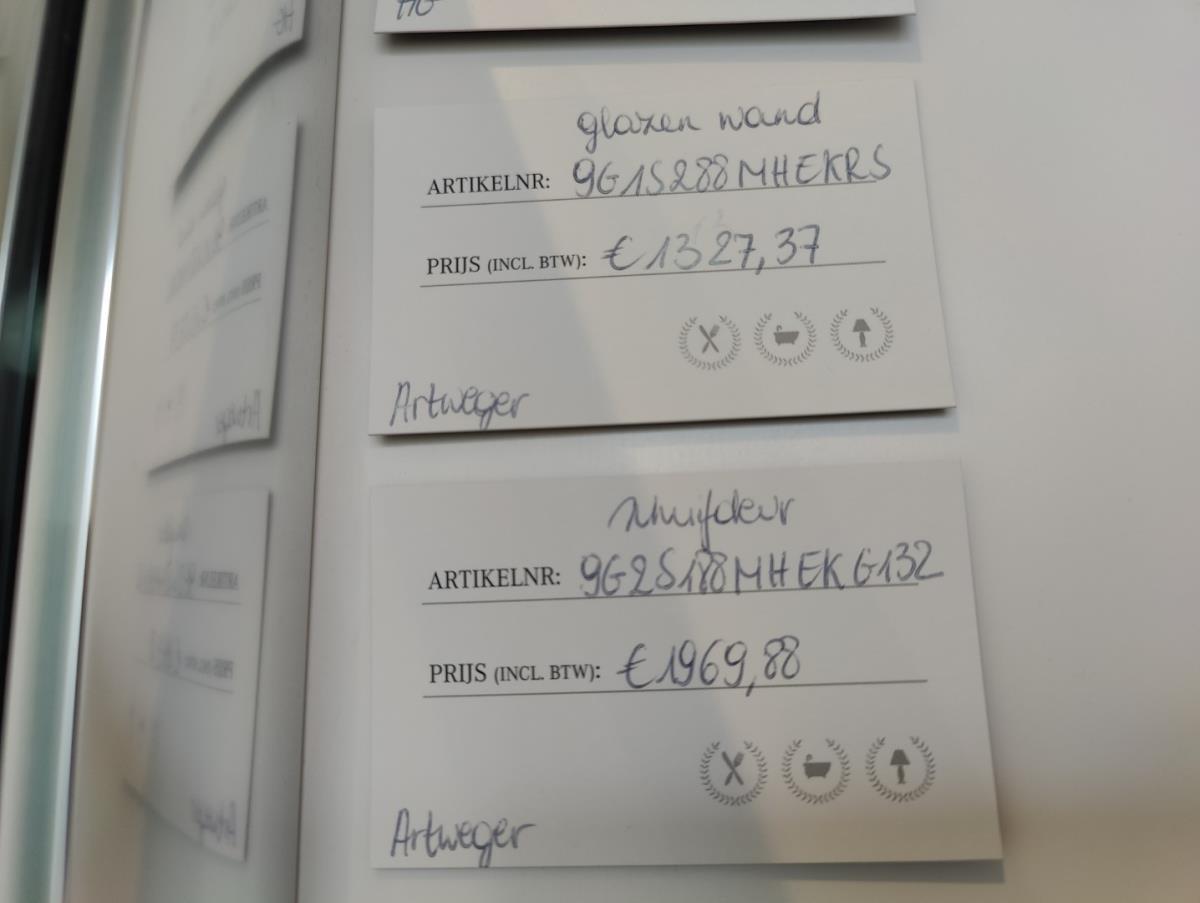 HG
glazen wand
ARTIKELNR: 9G1S288MHEKRS
PRIJS (INCL. BTW): € 1327,37
Artweger
schuifdeur
ARTIKELNR: 9G2S188MHEKG132
PRIJS (INCL. BTW): € 1969,88
Artweger